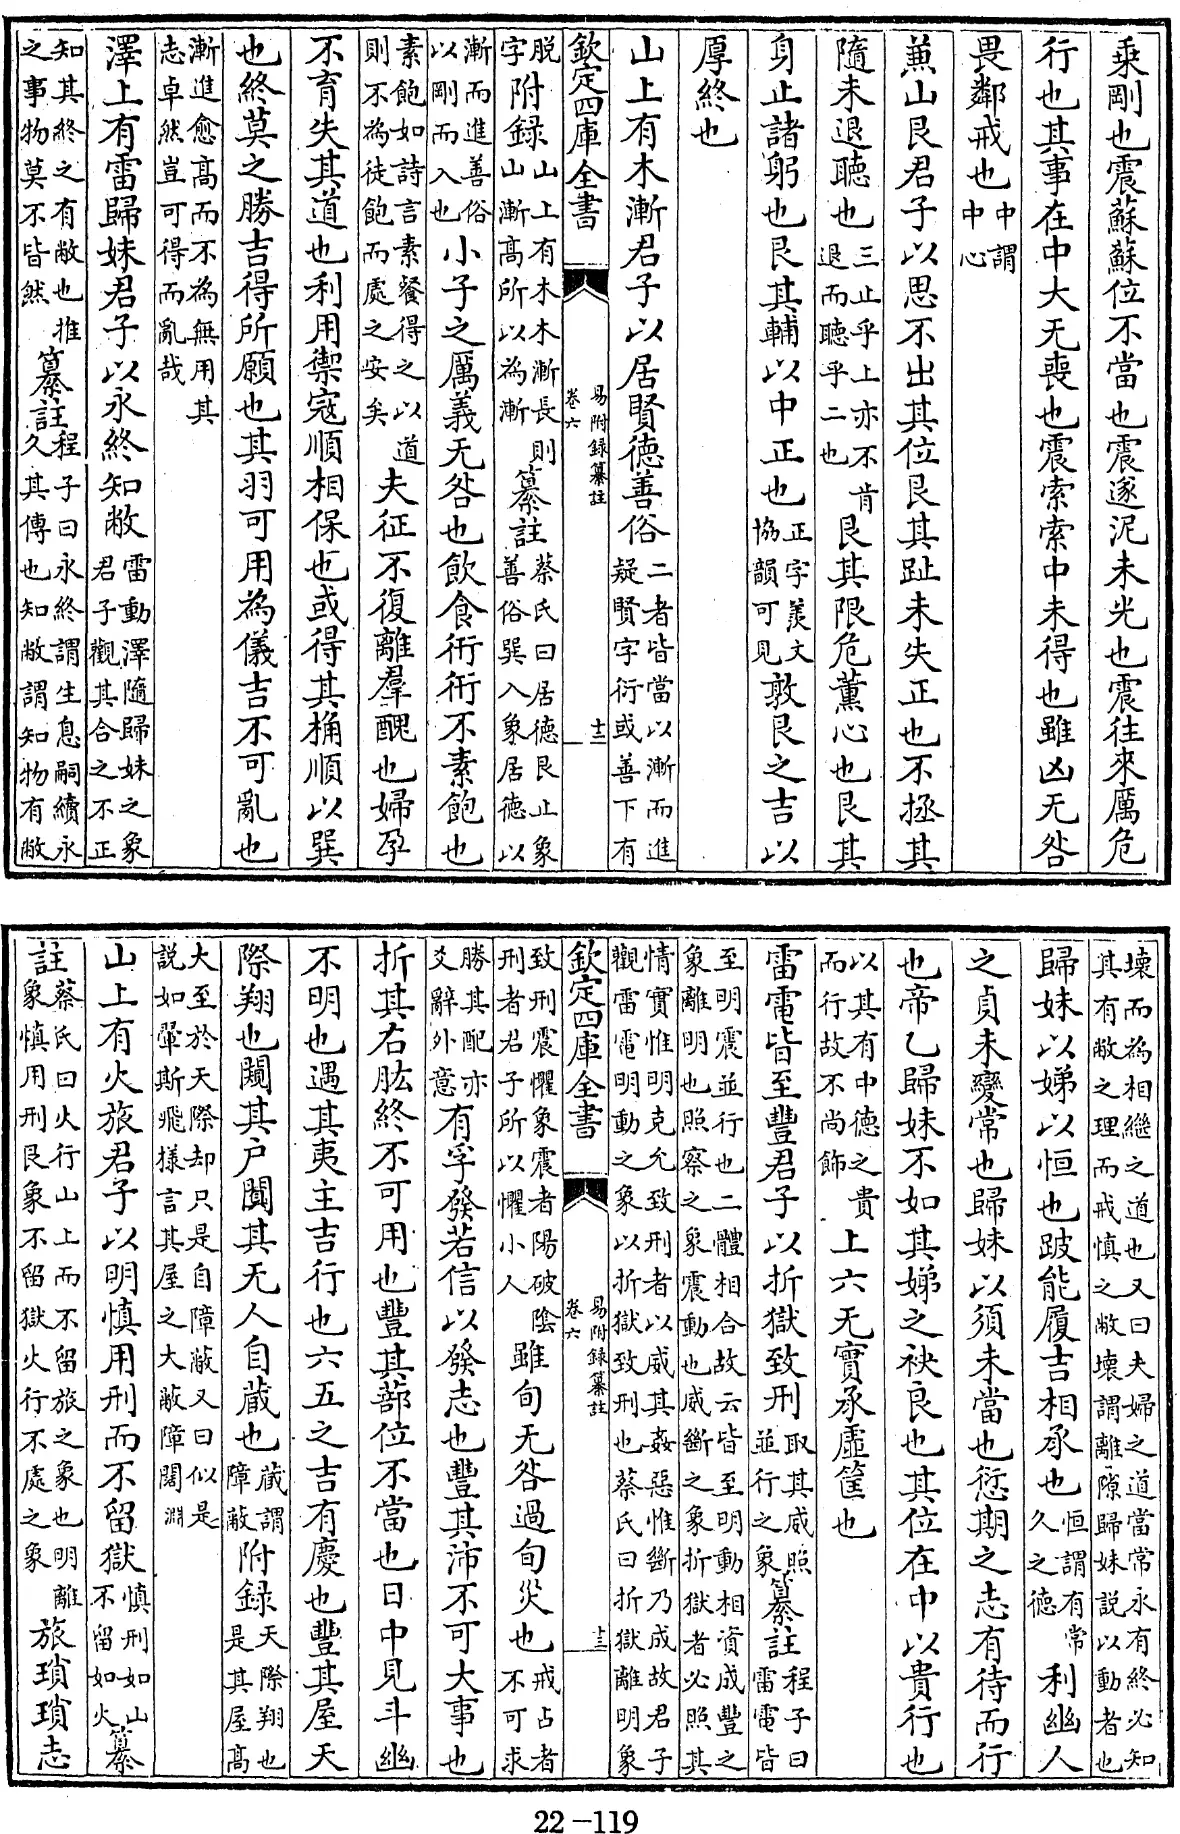 乗剛也震蘇蘇位不當也震遂泥未光也震往來厲危
行也其事在中大无喪也震索索中未得也雖凶无咎
畏鄰戒也中謂中心
兼山艮君子以思不出其位艮其趾未失正也不拯其
隨未退聽也三止乎上亦不肯退而聽乎二也艮其限危薫心也艮其
身止諸躬也艮其輔以中正也正字羨文協韻可見敦艮之吉以
厚終也
山上有木漸君子以居賢德善俗二者皆當以漸而進疑賢字衍或善下有
欽定四庫全書
易附録纂註
卷六
十二
脱字附録山上有木木漸長則山漸髙所以為漸纂註蔡氏曰居德艮止象善俗巽入象居德以
漸而進善俗以剛而入也小子之厲義无咎也飲食衎衎不素飽也
素飽如詩言素餐得之以道則不為徒飽而處之安矣夫征不復離羣醜也婦孕
不育失其道也利用禦寇順相保也或得其桷順以巽
也終莫之勝吉得所願也其羽可用為儀吉不可亂也
漸進愈髙而不為無用其志卓然豈可得而亂哉
澤上有雷歸妹君子以永終知敝雷動澤隨歸妹之象君子觀其合之不正
知其終之有敝也推之事物莫不皆然纂註程子曰永終謂生息嗣續永久其傳也知敝謂知物有敝
壊而為相繼之道也又曰夫婦之道當常永有終必知其有敝之理而戒慎之敝壊謂離隙歸妹説以動者也
歸妹以娣以恒也跛能履吉相承也恒謂有常久之德利幽人
之貞未變常也歸妹以須未當也愆期之志有待而行
也帝乙歸妹不如其娣之袂良也其位在中以貴行也
以其有中德之貴而行故不尚飾上六无實承虚筐也
雷電皆至豐君子以折獄致刑取其威照並行之象纂註程子曰雷電皆
至明震並行也二體相合故云皆至明動相資成豐之象離明也照察之象震動也威斷之象折獄者必照其
情實惟明克允致刑者以威其姦惡惟斷乃成故君子觀雷電明動之象以折獄致刑也蔡氏曰折獄離明象
欽定四庫全書
易附録纂註
卷六
十三
致刑震懼象震者陽破陰刑者君子所以懼小人雖旬无咎過旬災也戒占者不可求
勝其配亦爻辭外意有孚發若信以發志也豐其沛不可大事也
折其右肱終不可用也豐其蔀位不當也日中見斗幽
不明也遇其夷主吉行也六五之吉有慶也豐其屋天
際翔也闚其户闃其无人自蔵也蔵謂障蔽附録天際翔也是其屋髙
大至於天際却只是自障蔽又曰似是説如翬斯飛様言其屋之大蔽障闊
山上有火旅君子以明慎用刑而不留獄慎刑如山不留如火纂
註蔡氏曰火行山上而不留旅之象也明離象慎用刑艮象不留獄火行不處之象旅瑣瑣志
22－119